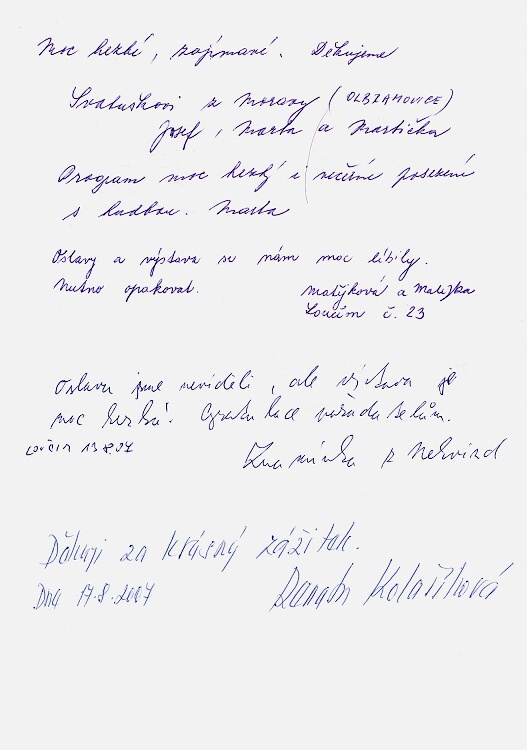 Moc hezké, zajímavé. Děkujeme
Svatuškovi z Moravy (OLBRAMOVICE)
Josef, Marta a Martička
Program moc hezký i večerní posezení
s hudbou. Marta
Oslavy a výstava se nám moc líbily.
Nutno opakovat.
Matějková a Matějka
Loučim č. 23
Oslavu jsme neviděli, ale výstava je
moc hezká! Gratulace pořadatelům.
Loučim 13 8 07
z
Děkuji za krásný zážitek.
Dna 17.8.2007
Kolaříková